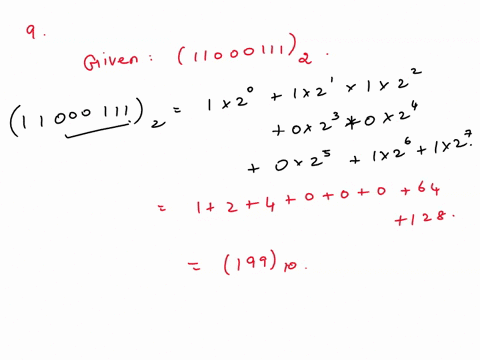 9.
Given: (11000111)₂.
(11000111)₂ = 1×2⁰ + 1×2¹ × 1×2²
+0×2³ *0×2⁴
+ 0×2⁵ + 1×2⁶ + 1×2⁷.
= 1+2+4+0+0+0 +64
+128.
= (199)₁₀.